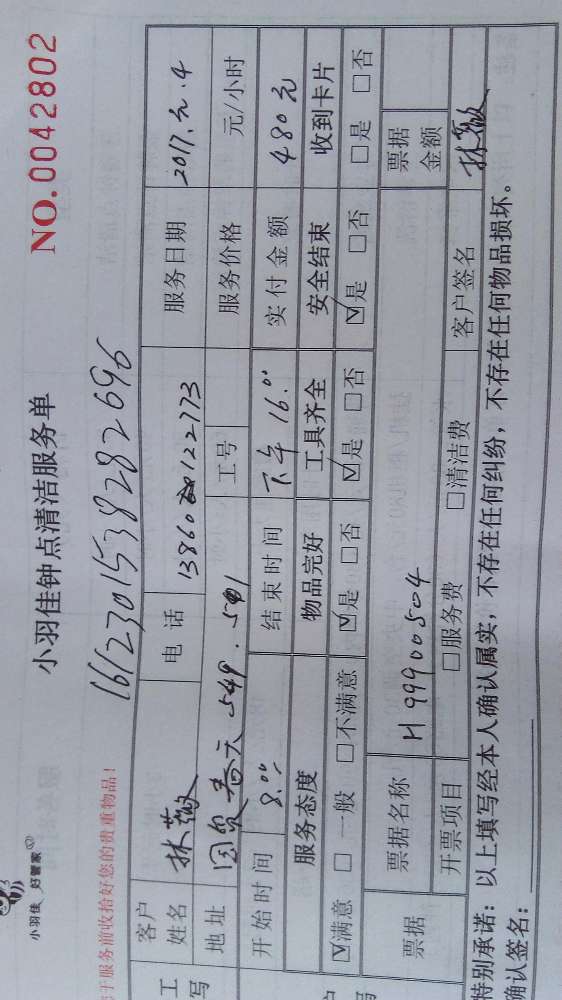 小羽佳 好管家
NO.0042802
小羽佳钟点清洁服务单
1612301538282696
于服务前收拾好您的贵重物品！
客户姓名 林薇 电话 13860122773 服务日期 2017.元.4
地址 国贸春天 549.501 工号 服务价格 元/小时
开始时间 8.00 结束时间 下午 16.00 实付金额 480元
服务态度 物品完好 工具齐全 安全结束 收到卡片
☑满意 □一般 □不满意 ☑是 □否 ☑是 □否 ☑是 □否 □是 □否
票据 票据名称 H 99900504 票据金额
开票项目 □服务费 □清洁费 客户签名 林薇
特别承诺：以上填写经本人确认属实，不存在任何纠纷，不存在任何物品损坏。
确认签名：